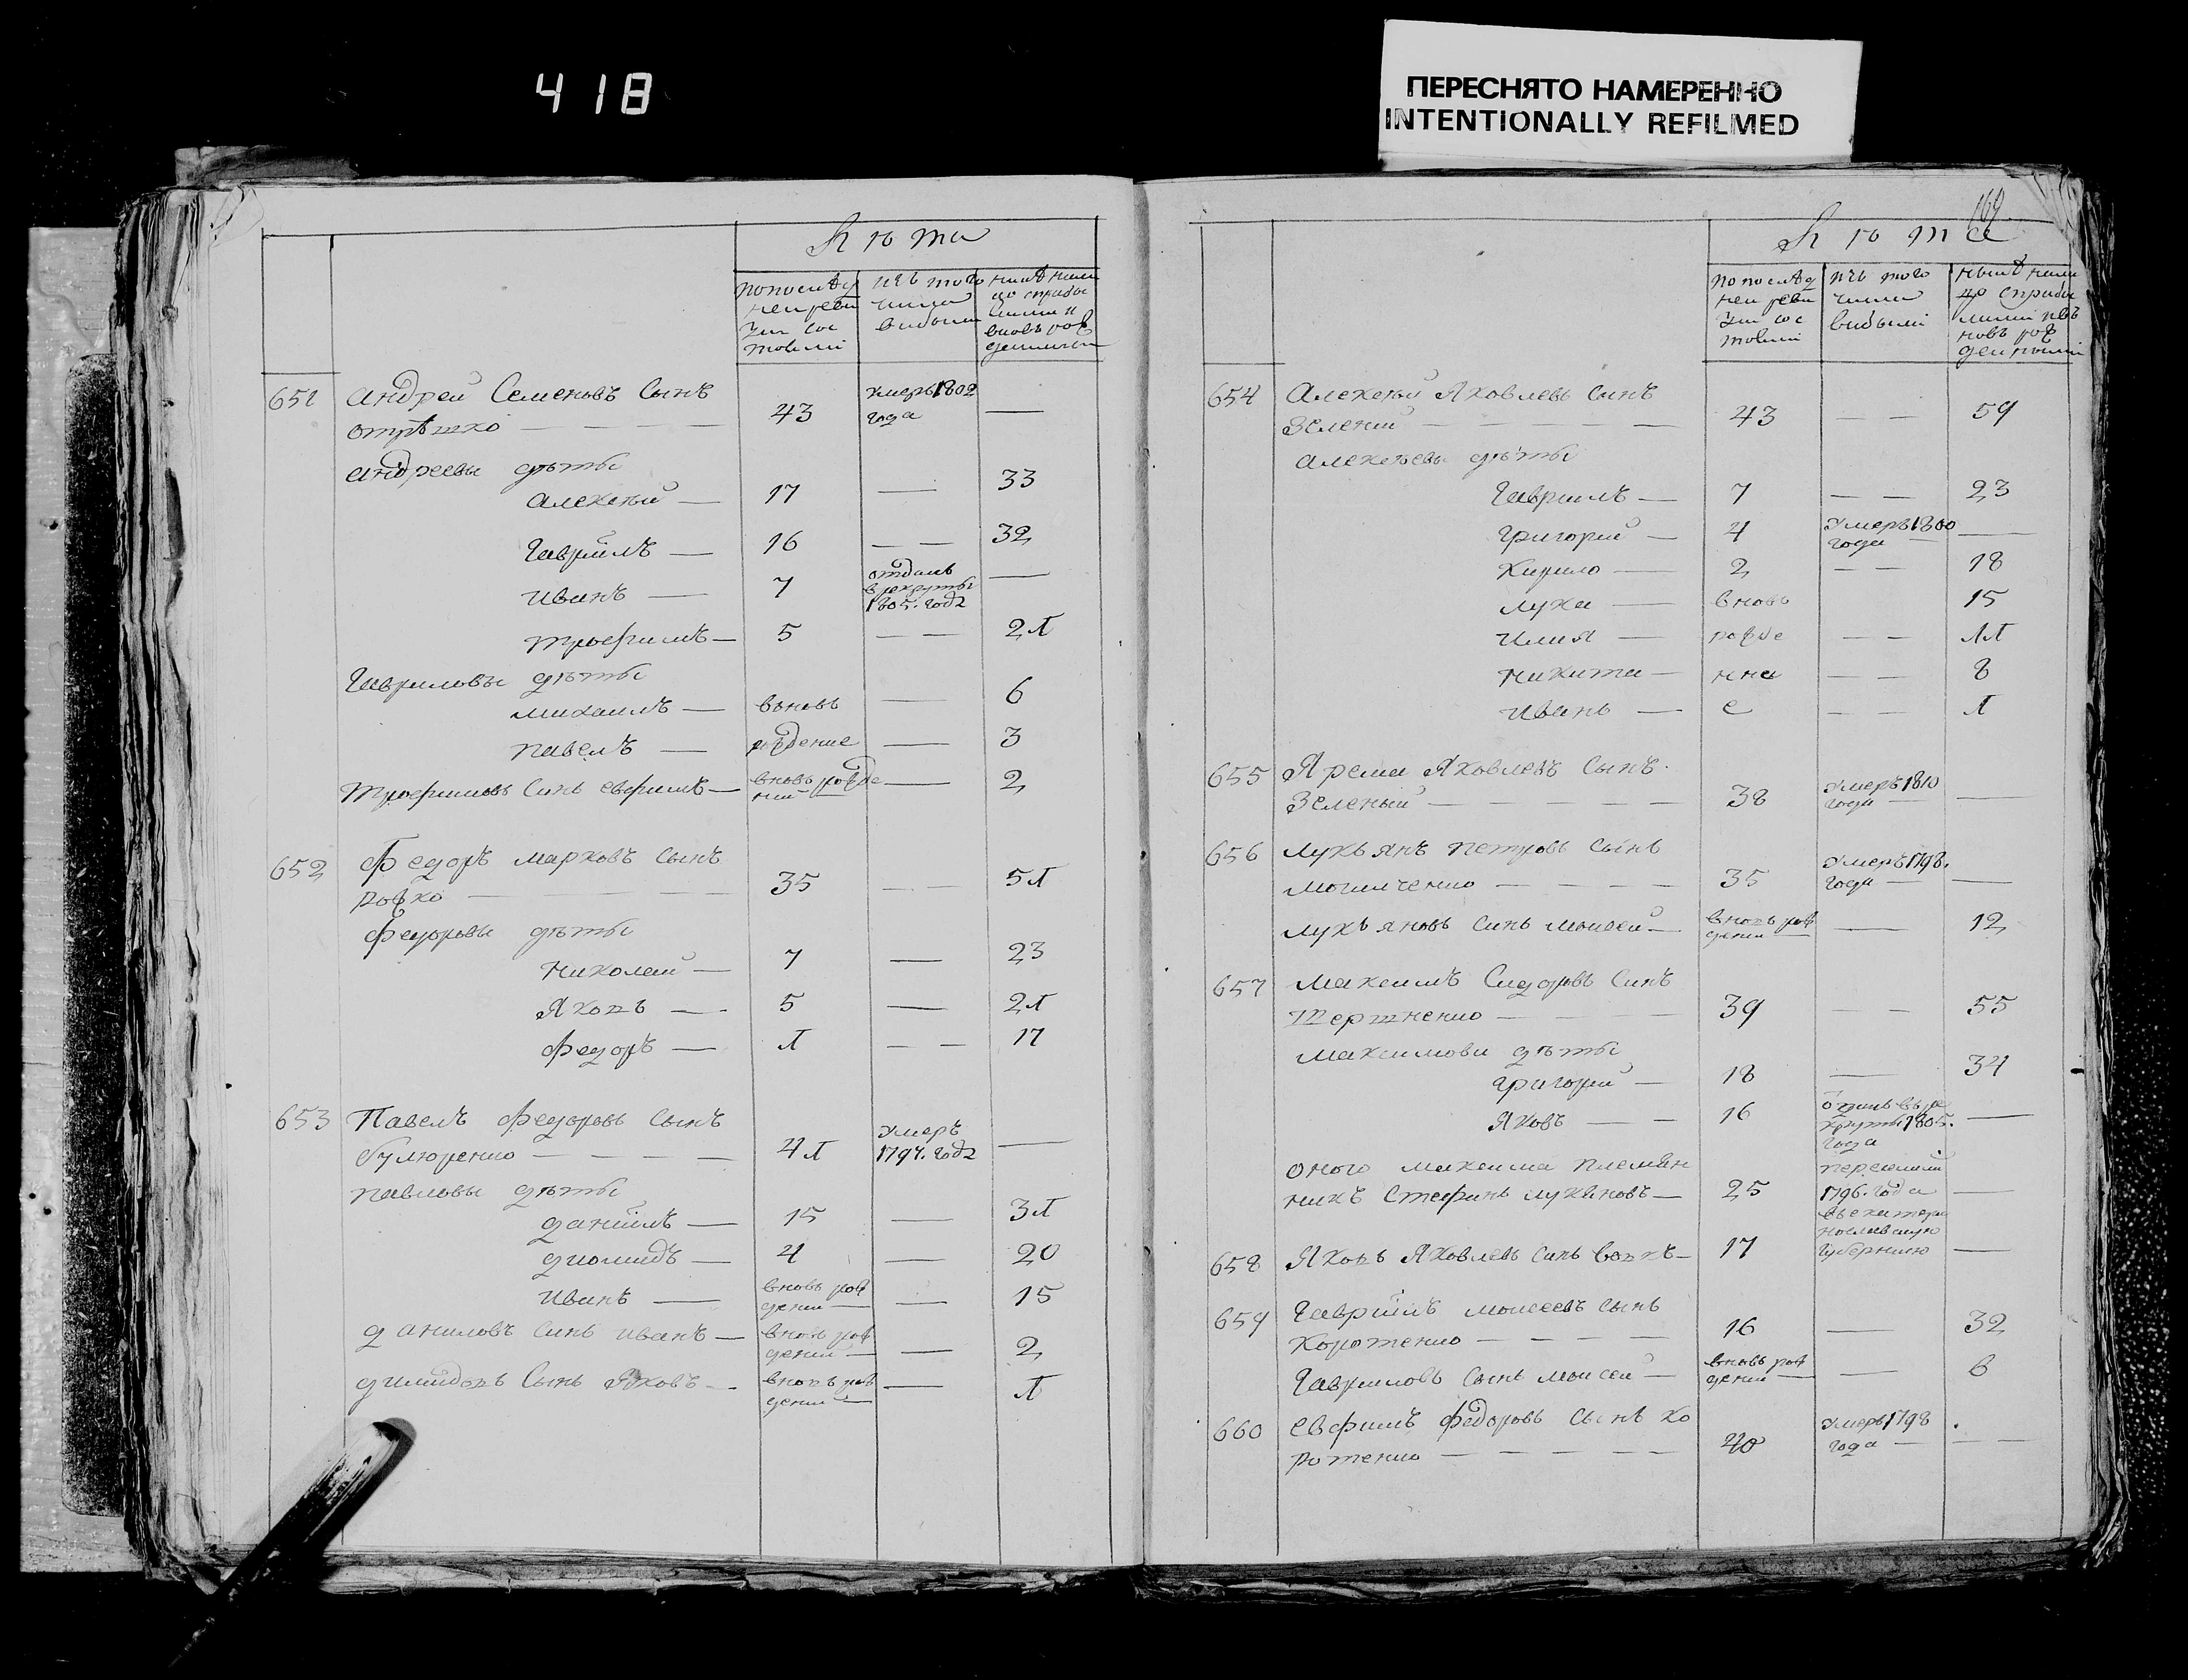 418
ПЕРЕСНЯТО НАМЕРЕННО
INTENTIONALLY REFILMED
Лѣта
по послѣд
ней реви
зіи сос
тояли
изъ того
числа
выбыли
651 Андрей Семеновъ Сынъ
отрѣшко — — — — 43 умеръ 1802 года —
андреевы дѣты
Алексѣй — 17 — 33
Гаврiилъ — 16 — — 32
Иванъ — 7 отданъ в рекруты 1805. года —
Трофимъ — 5 — — 21
Гавриловы дѣты
михаилъ — вьновь — 6
павелъ — рождение — 3
Трофимовъ Синъ евфимъ — вновь рожде ний — 2
652 Федоръ марковъ Сынъ
рожко — 35 — — 51
Федоровы дѣты
Николай — 7 — 23
Яковъ — 5 — 21
Федоръ — 1 — — 17
653 Павелъ Федоровъ Сынъ
— — — — 41 умеръ 1797. года —
павловы дѣты
данiилъ — 15 — 31
диомидъ — 4 — 20
Иванъ — вновь рож дений — 15
даниловъ Синъ иванъ — вновь рож дений — 2
Сынъ Яковъ — вновь рож дений — 1
169
Лѣта
по послѣд
ней реви
зіи сос
тояли
изъ того
числа
выбыли
654 Алексѣй Яковлевъ Сынъ
Зелений — — — — — 43 — — 59
алексѣевы дѣты
Гаврiилъ — 7 — — 23
Григорий — 4 умеръ 1800 года —
Кирило — 2 — — 18
лука — вновь 15
илия — рожде — — 11
никита — нна — — 8
Иванъ — е — — 1
655 Ярема Яковлевъ Сынъ
Зеленый — — — — — 38 умеръ 1810 года —
656 лукьянъ петровъ Сынъ
— — — — 35 умеръ 1798. года —
лукьяновъ Синъ моисей — вновь рож дений — — 12
657 максимъ Сидоровъ Синъ
— — — — 39 — — 55
максимови дѣты
Григорий — 18 — 34
Яковъ — — 16 отданъ въ ре круты 1805. года —
оного максима племян
никъ Стефанъ лукяновъ — 25 пересилили 1796. года —
въ екатери
нославскую
губернию
658 Яковъ Яковлевъ Синъ — 17 —
659 Гаврiилъ моисеевъ Сынъ
Коротенко — — — — 16 — 32
Гавриловъ Сынъ моисей — вновь рож дений — — 6
660 евфимъ Федоровъ Сынъ ко
ротенко — — — — — 40 умеръ 1798 года — — —